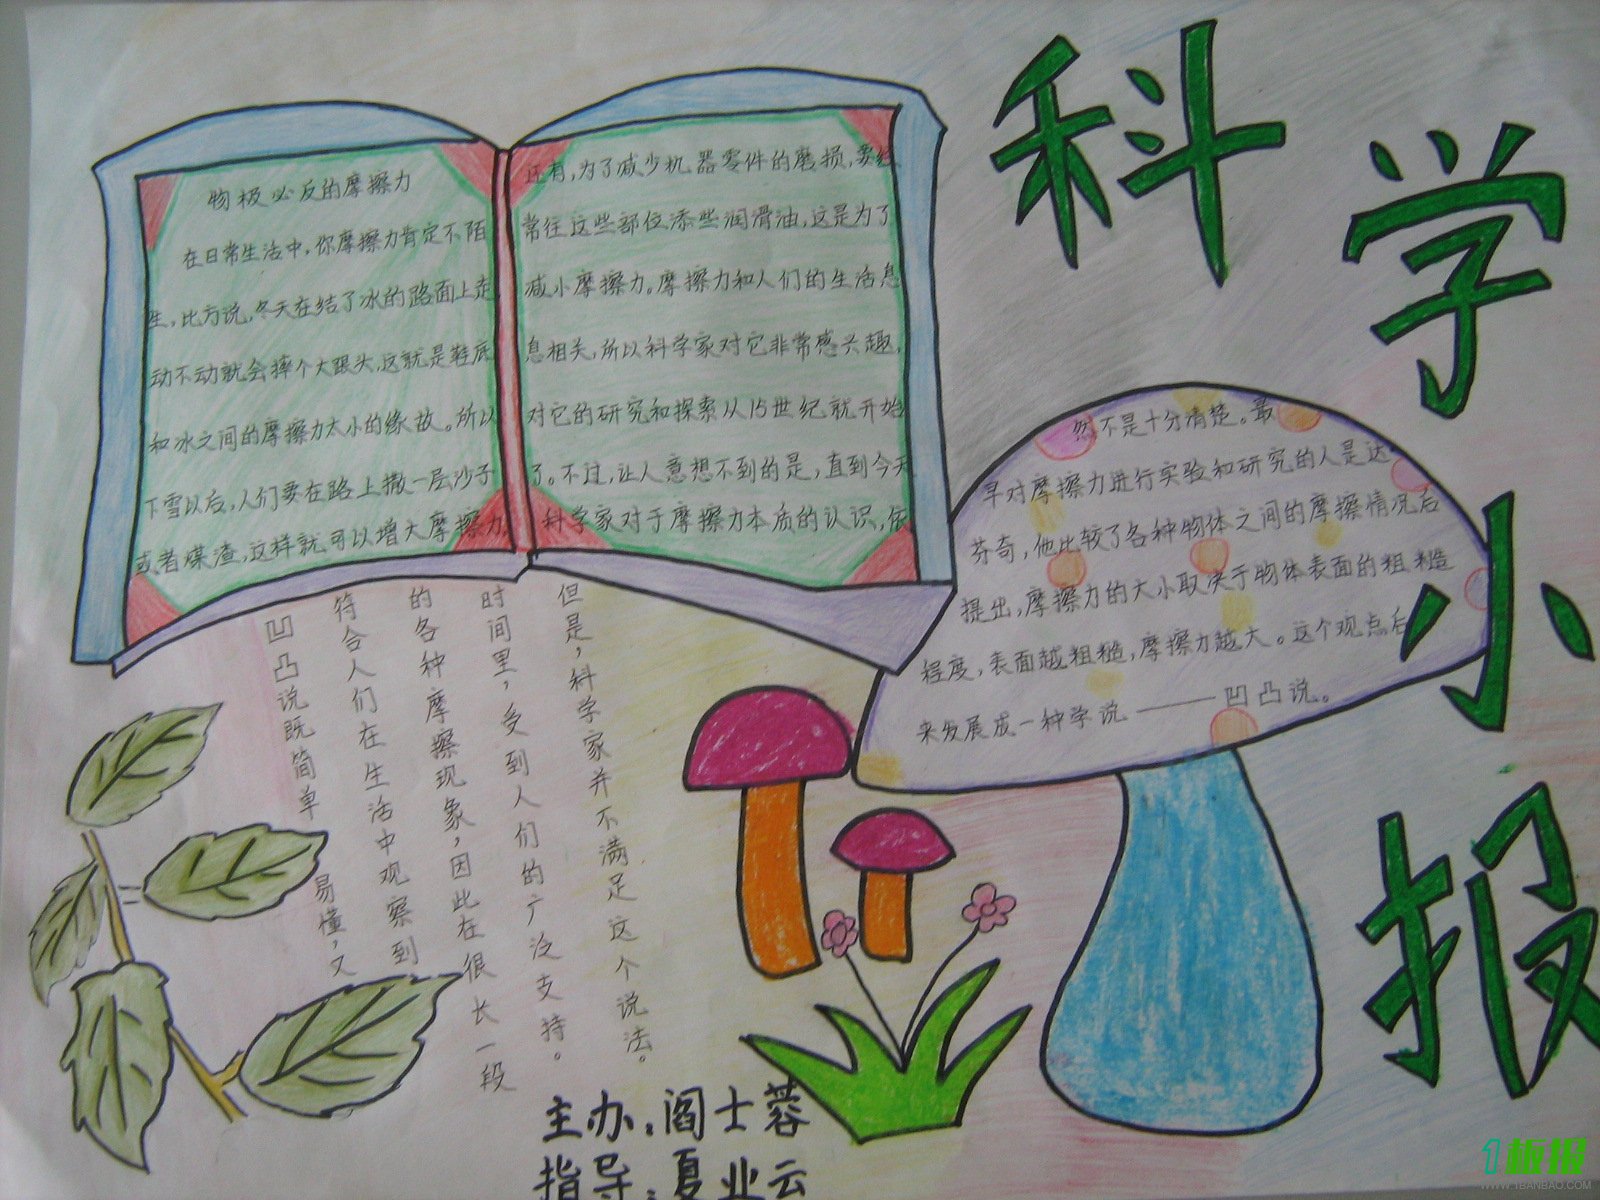 科学小报
物极必反的摩擦力
在日常生活中,你摩擦力肯定不陌
生,比方说,冬天在结了冰的路面上走,
动不动就会摔个大跟头,这就是鞋底
和冰之间的摩擦力太小的缘故。所以
下雪以后,人们要在路上撒一层沙子
或者煤渣,这样就可以增大摩擦力。
还有,为了减少机器零件的磨损,要经
常往这些部位添些润滑油,这是为了
减小摩擦力。摩擦力和人们的生活息
息相关,所以科学家对它非常感兴趣,
对它的研究和探索从15世纪就开始
了。不过,让人意想不到的是,直到今天
科学家对于摩擦力本质的认识,依
然不是十分清楚。最
早对摩擦力进行实验和研究的人是达
芬奇,他比较了各种物体之间的摩擦情况后
提出,摩擦力的大小取决于物体表面的粗糙
程度,表面越粗糙,摩擦力越大。这个观点后
来发展成一种学说——凹凸说。
凹凸说既简单易懂,又
符合人们在生活中观察到
的各种摩擦现象,因此在很长一段
时间里,受到人们的广泛支持。
但是,科学家并不满足这个说法。
主办:阎士蓉
指导:夏业云
1板报
WWW.1BANBAO.COM